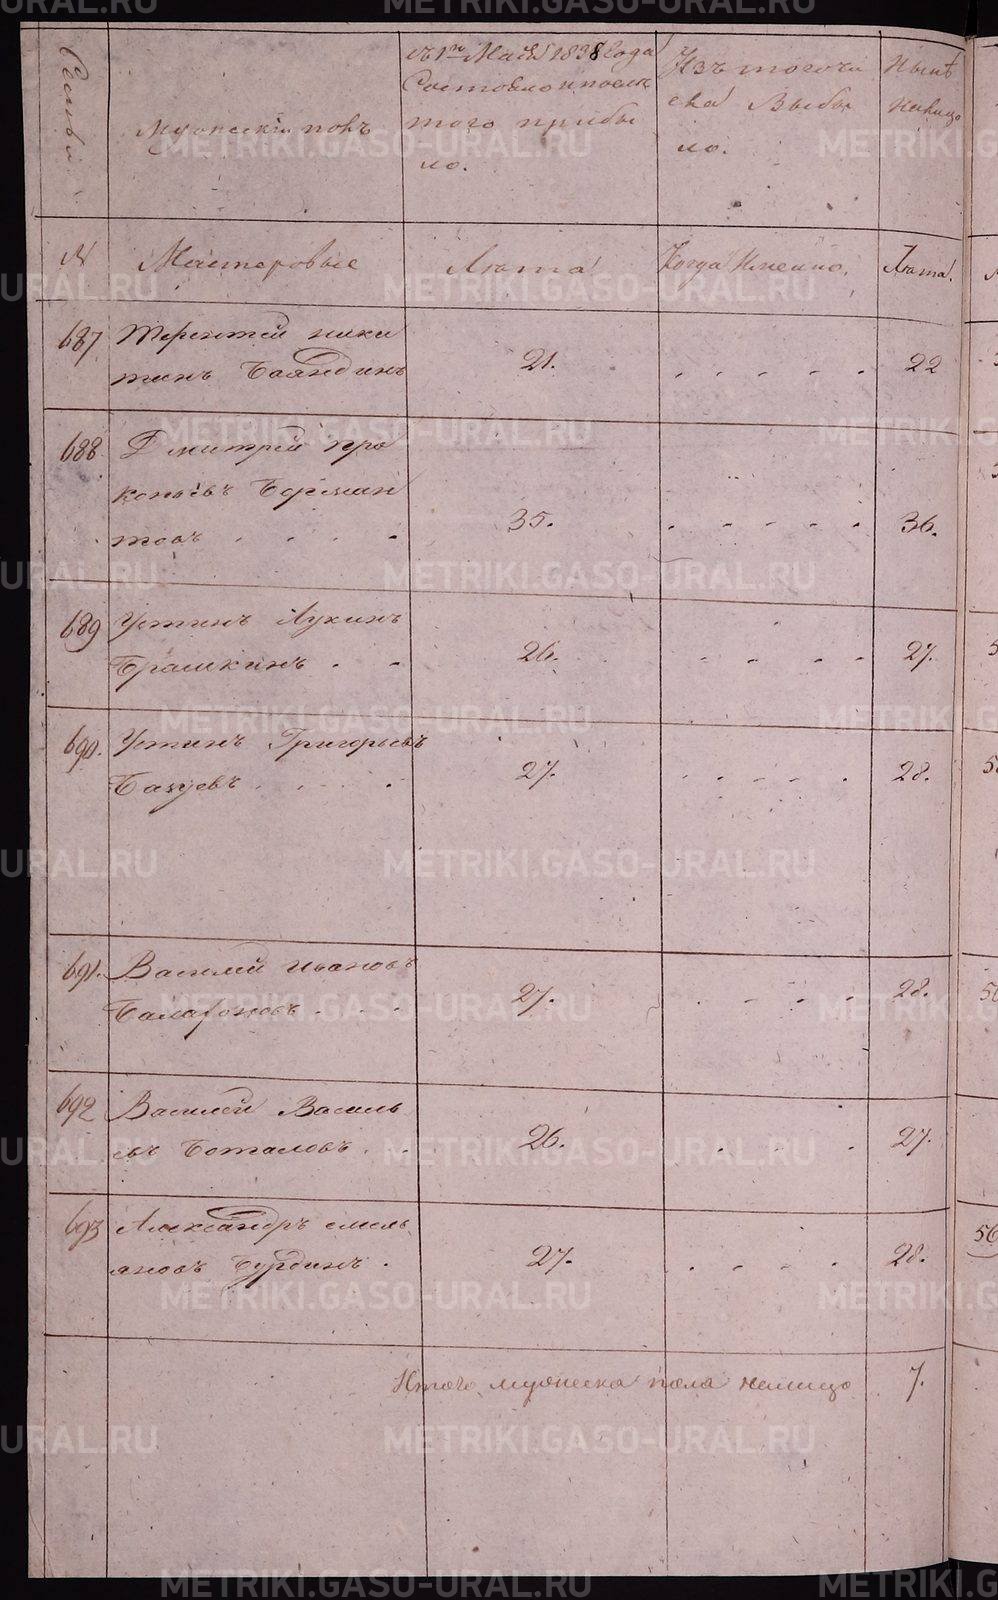 Семьи
Мужескiй полъ
съ 1го Маiя 1838 Года
Состояло и после
того прибы
ло.
Изъ того чи
сла Выбы
ло.
Ныне
налицо
№
Мастеровые
Лета
Когда Именно.
Лета.
687
Терентей ники
тинъ Баяндинъ
21.
22
688.
Дмитрей про
копьевъ
товъ
35.
36.
689
Устинъ Лукинъ
Брашкинъ
26.
27.
690.
Устинъ Григорьевъ
Базуевъ
27.
28.
691.
Василей ивановъ
27.
28.
692
Василей Василь
евъ Боталовъ
26.
27.
693
Александръ емель
яновъ Бурдинъ.
27.
28.
56
Итого мужеска пола налицо
7.
METRIKI.GASO-URAL.RU